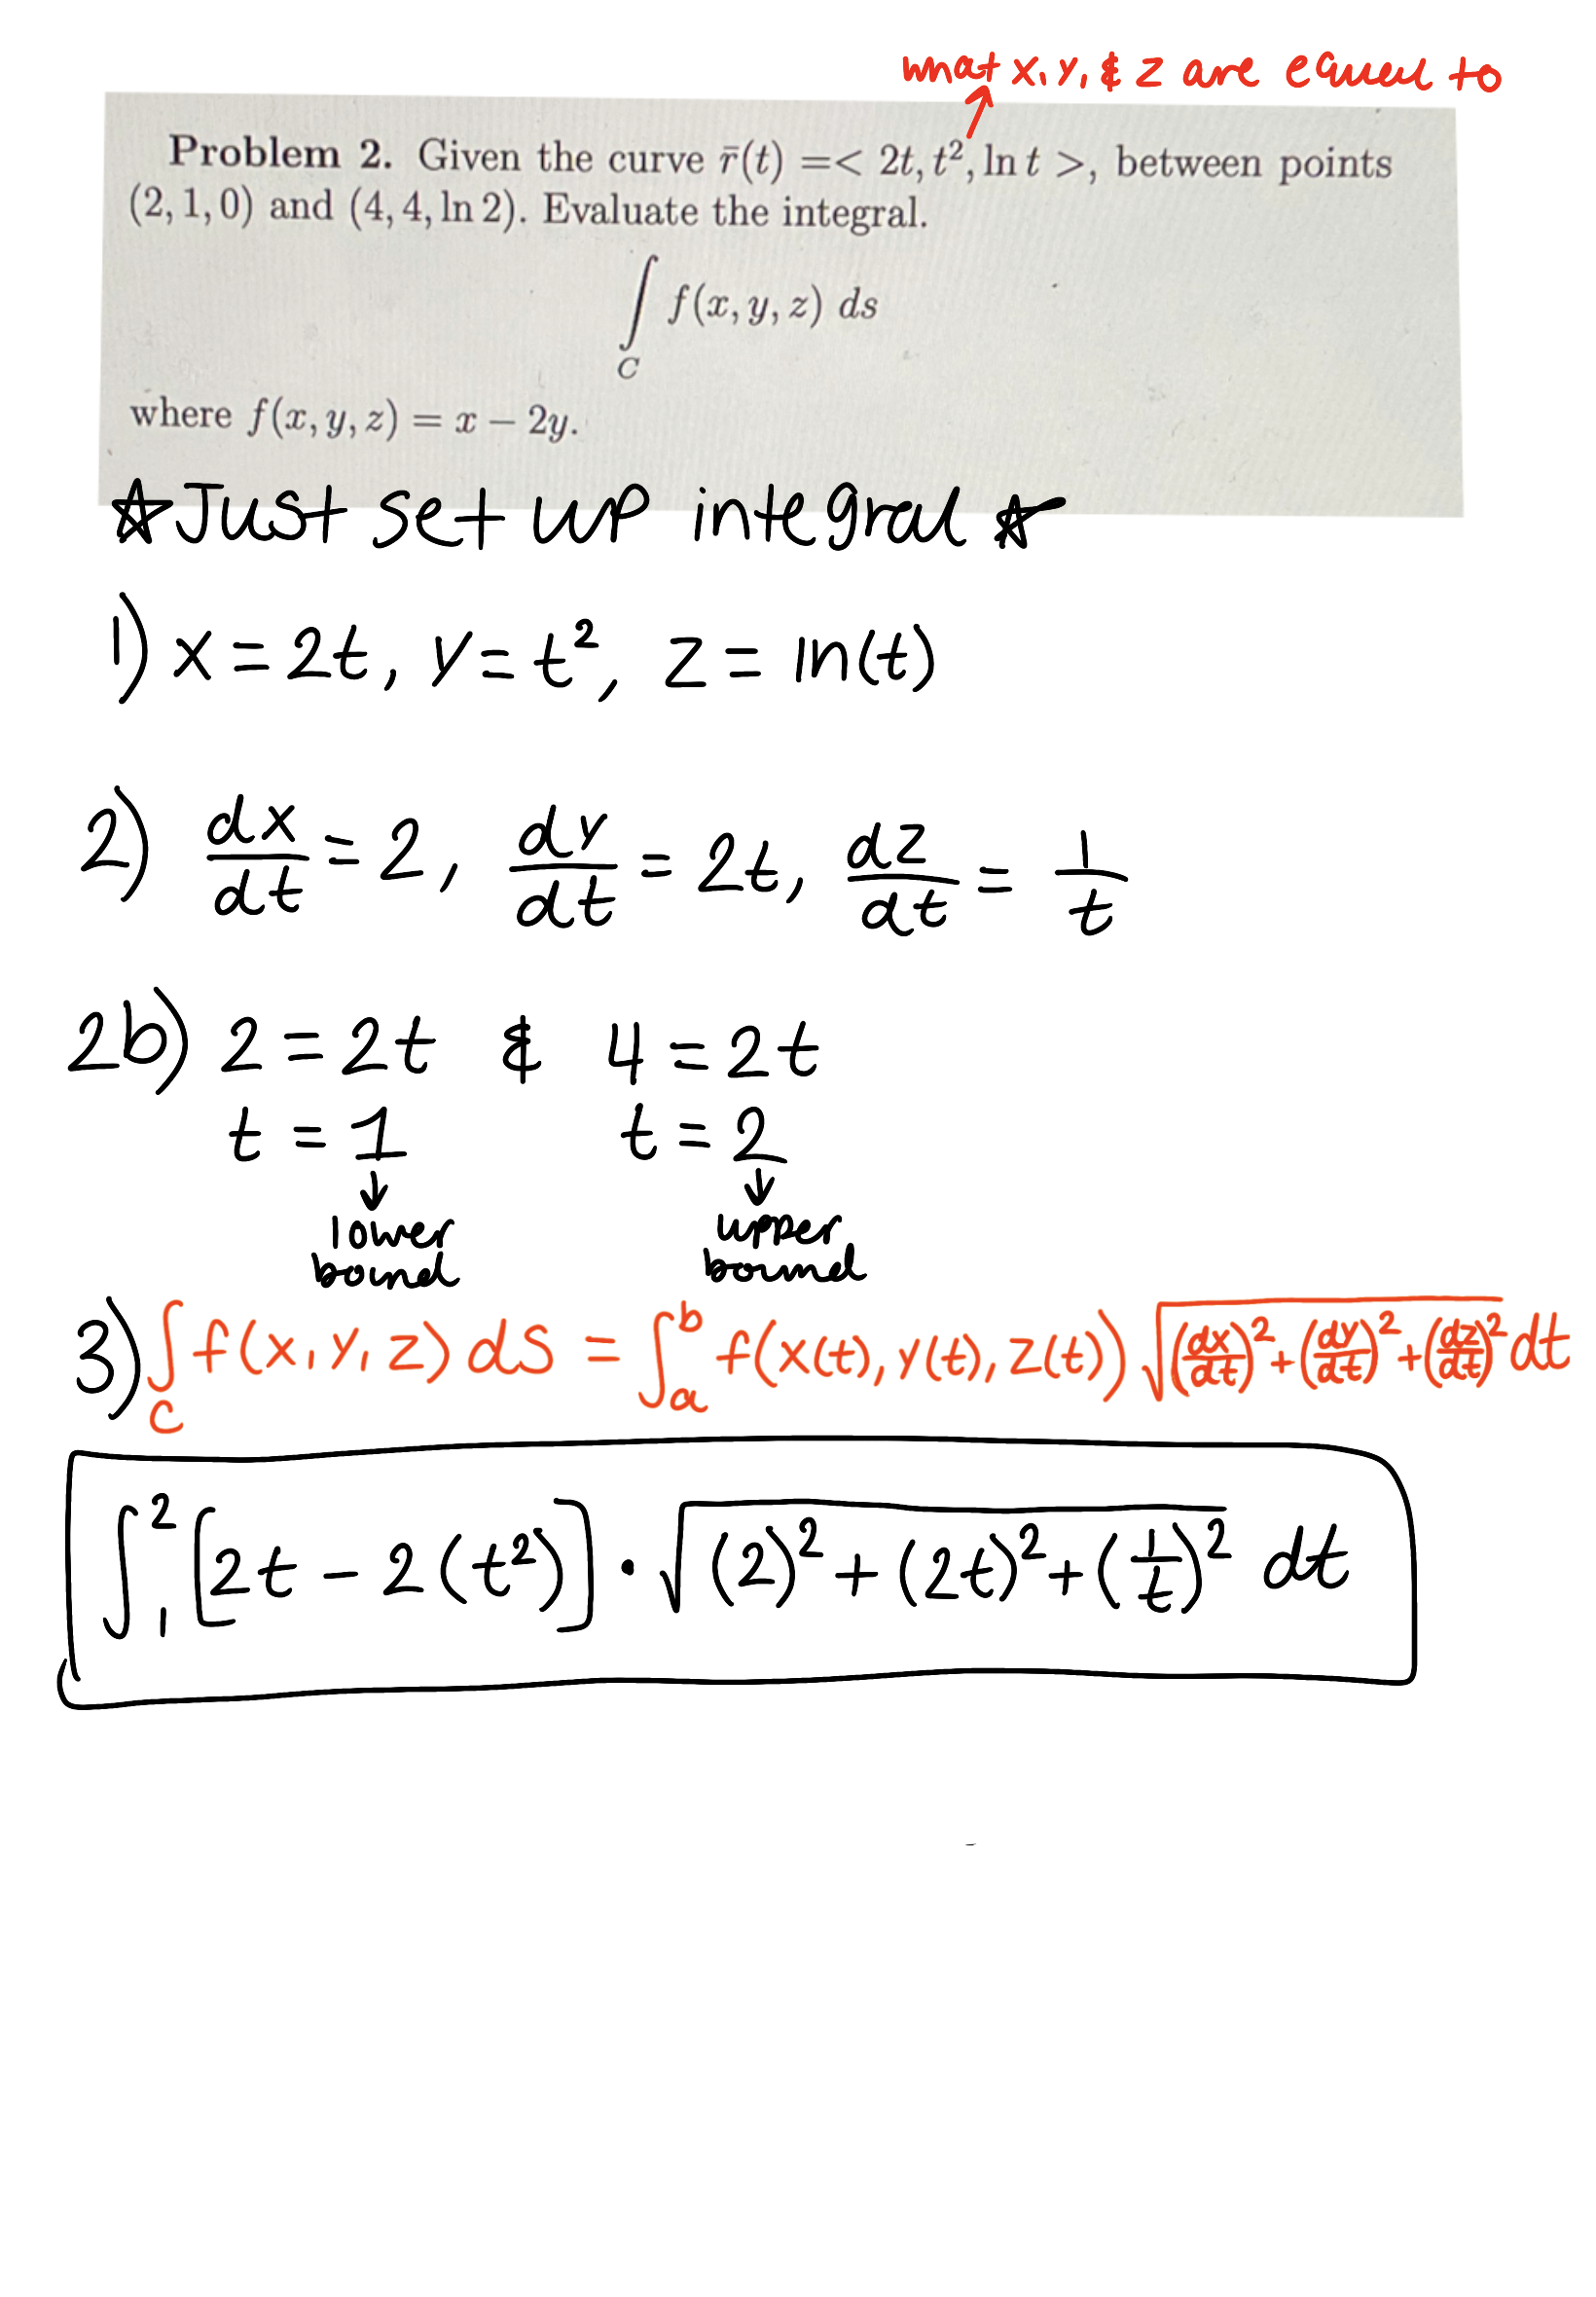 what x, y, & z are equal to
↑
Problem 2. Given the curve r̄(t) =< 2t, t², ln t >, between points
(2, 1, 0) and (4, 4, ln 2). Evaluate the integral.
∫_C f(x, y, z) ds
where f(x, y, z) = x − 2y.
☆ Just set up integral ☆
1) x = 2t, y = t², z = ln(t)
2) dx/dt = 2, dy/dt = 2t, dz/dt = 1/t
2b) 2 = 2t & 4 = 2t
t = 1 t = 2
↓ ↓
lower upper
bound bound
3) ∫_C f(x, y, z) ds = ∫_a^b f(x(t), y(t), z(t)) √((dx/dt)² + (dy/dt)² + (dz/dt)²) dt
∫_1^2 [2t − 2(t²)] · √((2)² + (2t)² + (1/t)²) dt